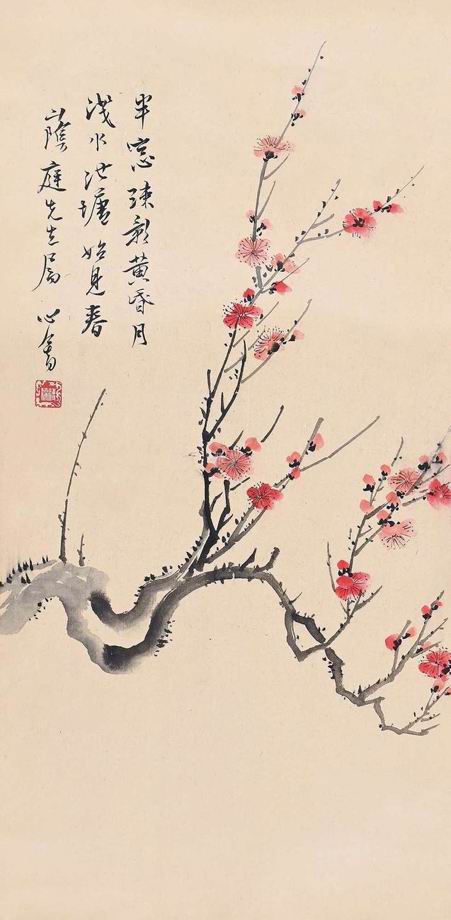 半窗疎影黃昏月
淺水池塘始見春
蔭庭先生属 心畬